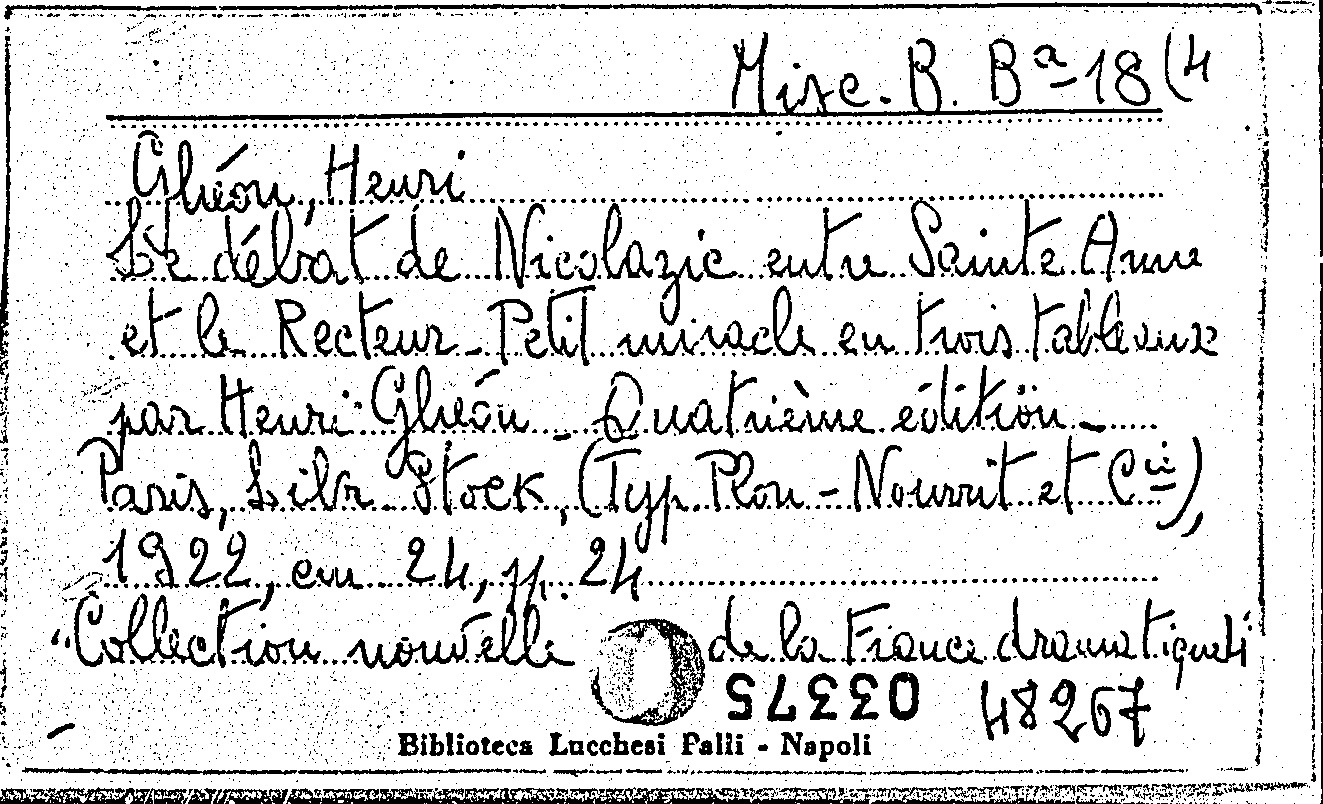 Misc. B. Bª-18(4
Ghéon, Henri
Le débat de Nicolazic entre Sainte Anne
et le Recteur - Petit miracle en trois tableaux
par Henri Ghéon - Quatrième édition -
Paris, Libr. Stock, (Typ. Plon-Nourrit et Cie),
1922, cm. 24, pp. 24
"Collection nouvelle de la France dramatique"
48267
Biblioteca Lucchesi Palli - Napoli